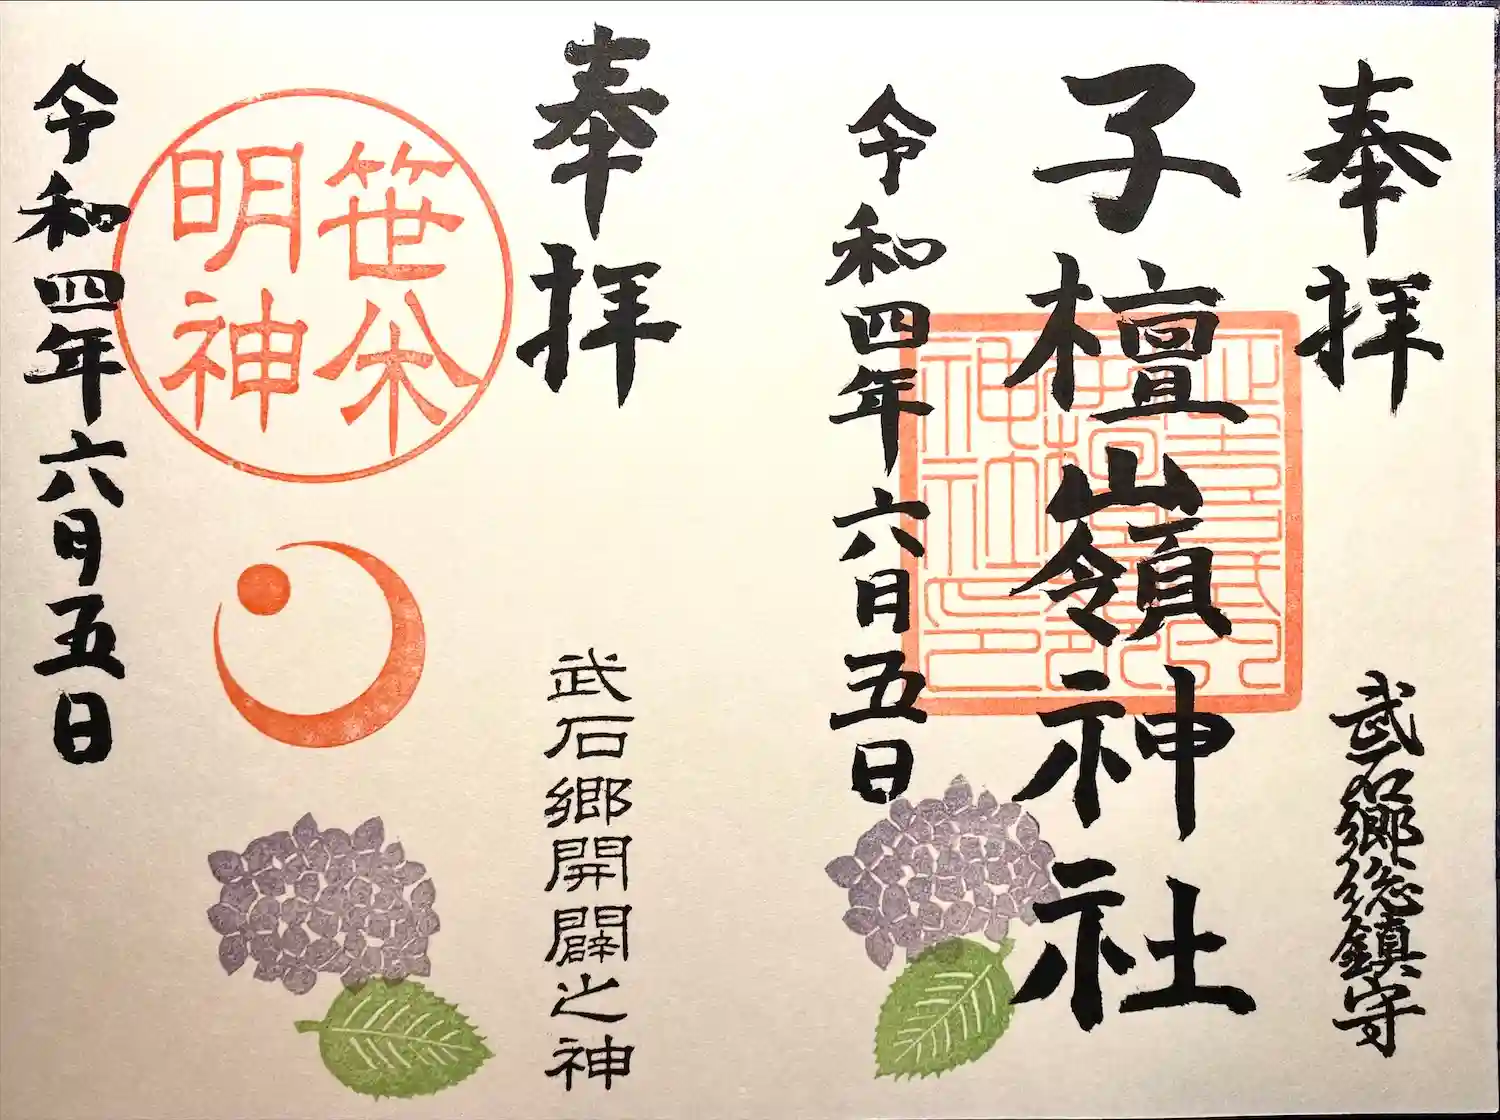 奉拝
武石郷総鎮守
子檀嶺神社
令和四年六月五日
奉拝
武石郷開闢之神
笹
明神
令和四年六月五日